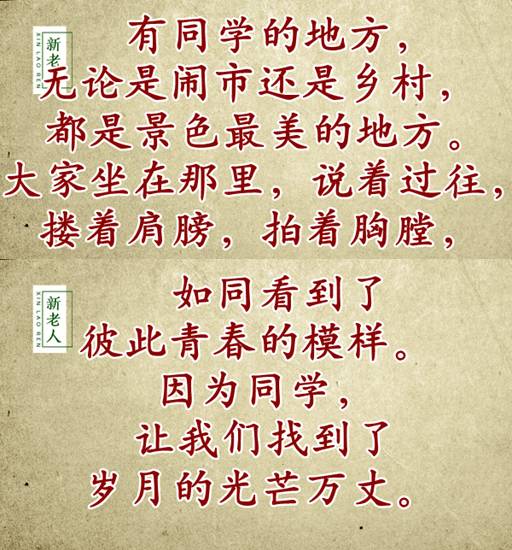 新老
XIN LAO REN
有同学的地方，
无论是闹市还是乡村，
都是景色最美的地方。
大家坐在那里，说着过往，
搂着肩膀，拍着胸膛，
新老人
XIN LAO REN
如同看到了
彼此青春的模样。
因为同学，
让我们找到了
岁月的光芒万丈。